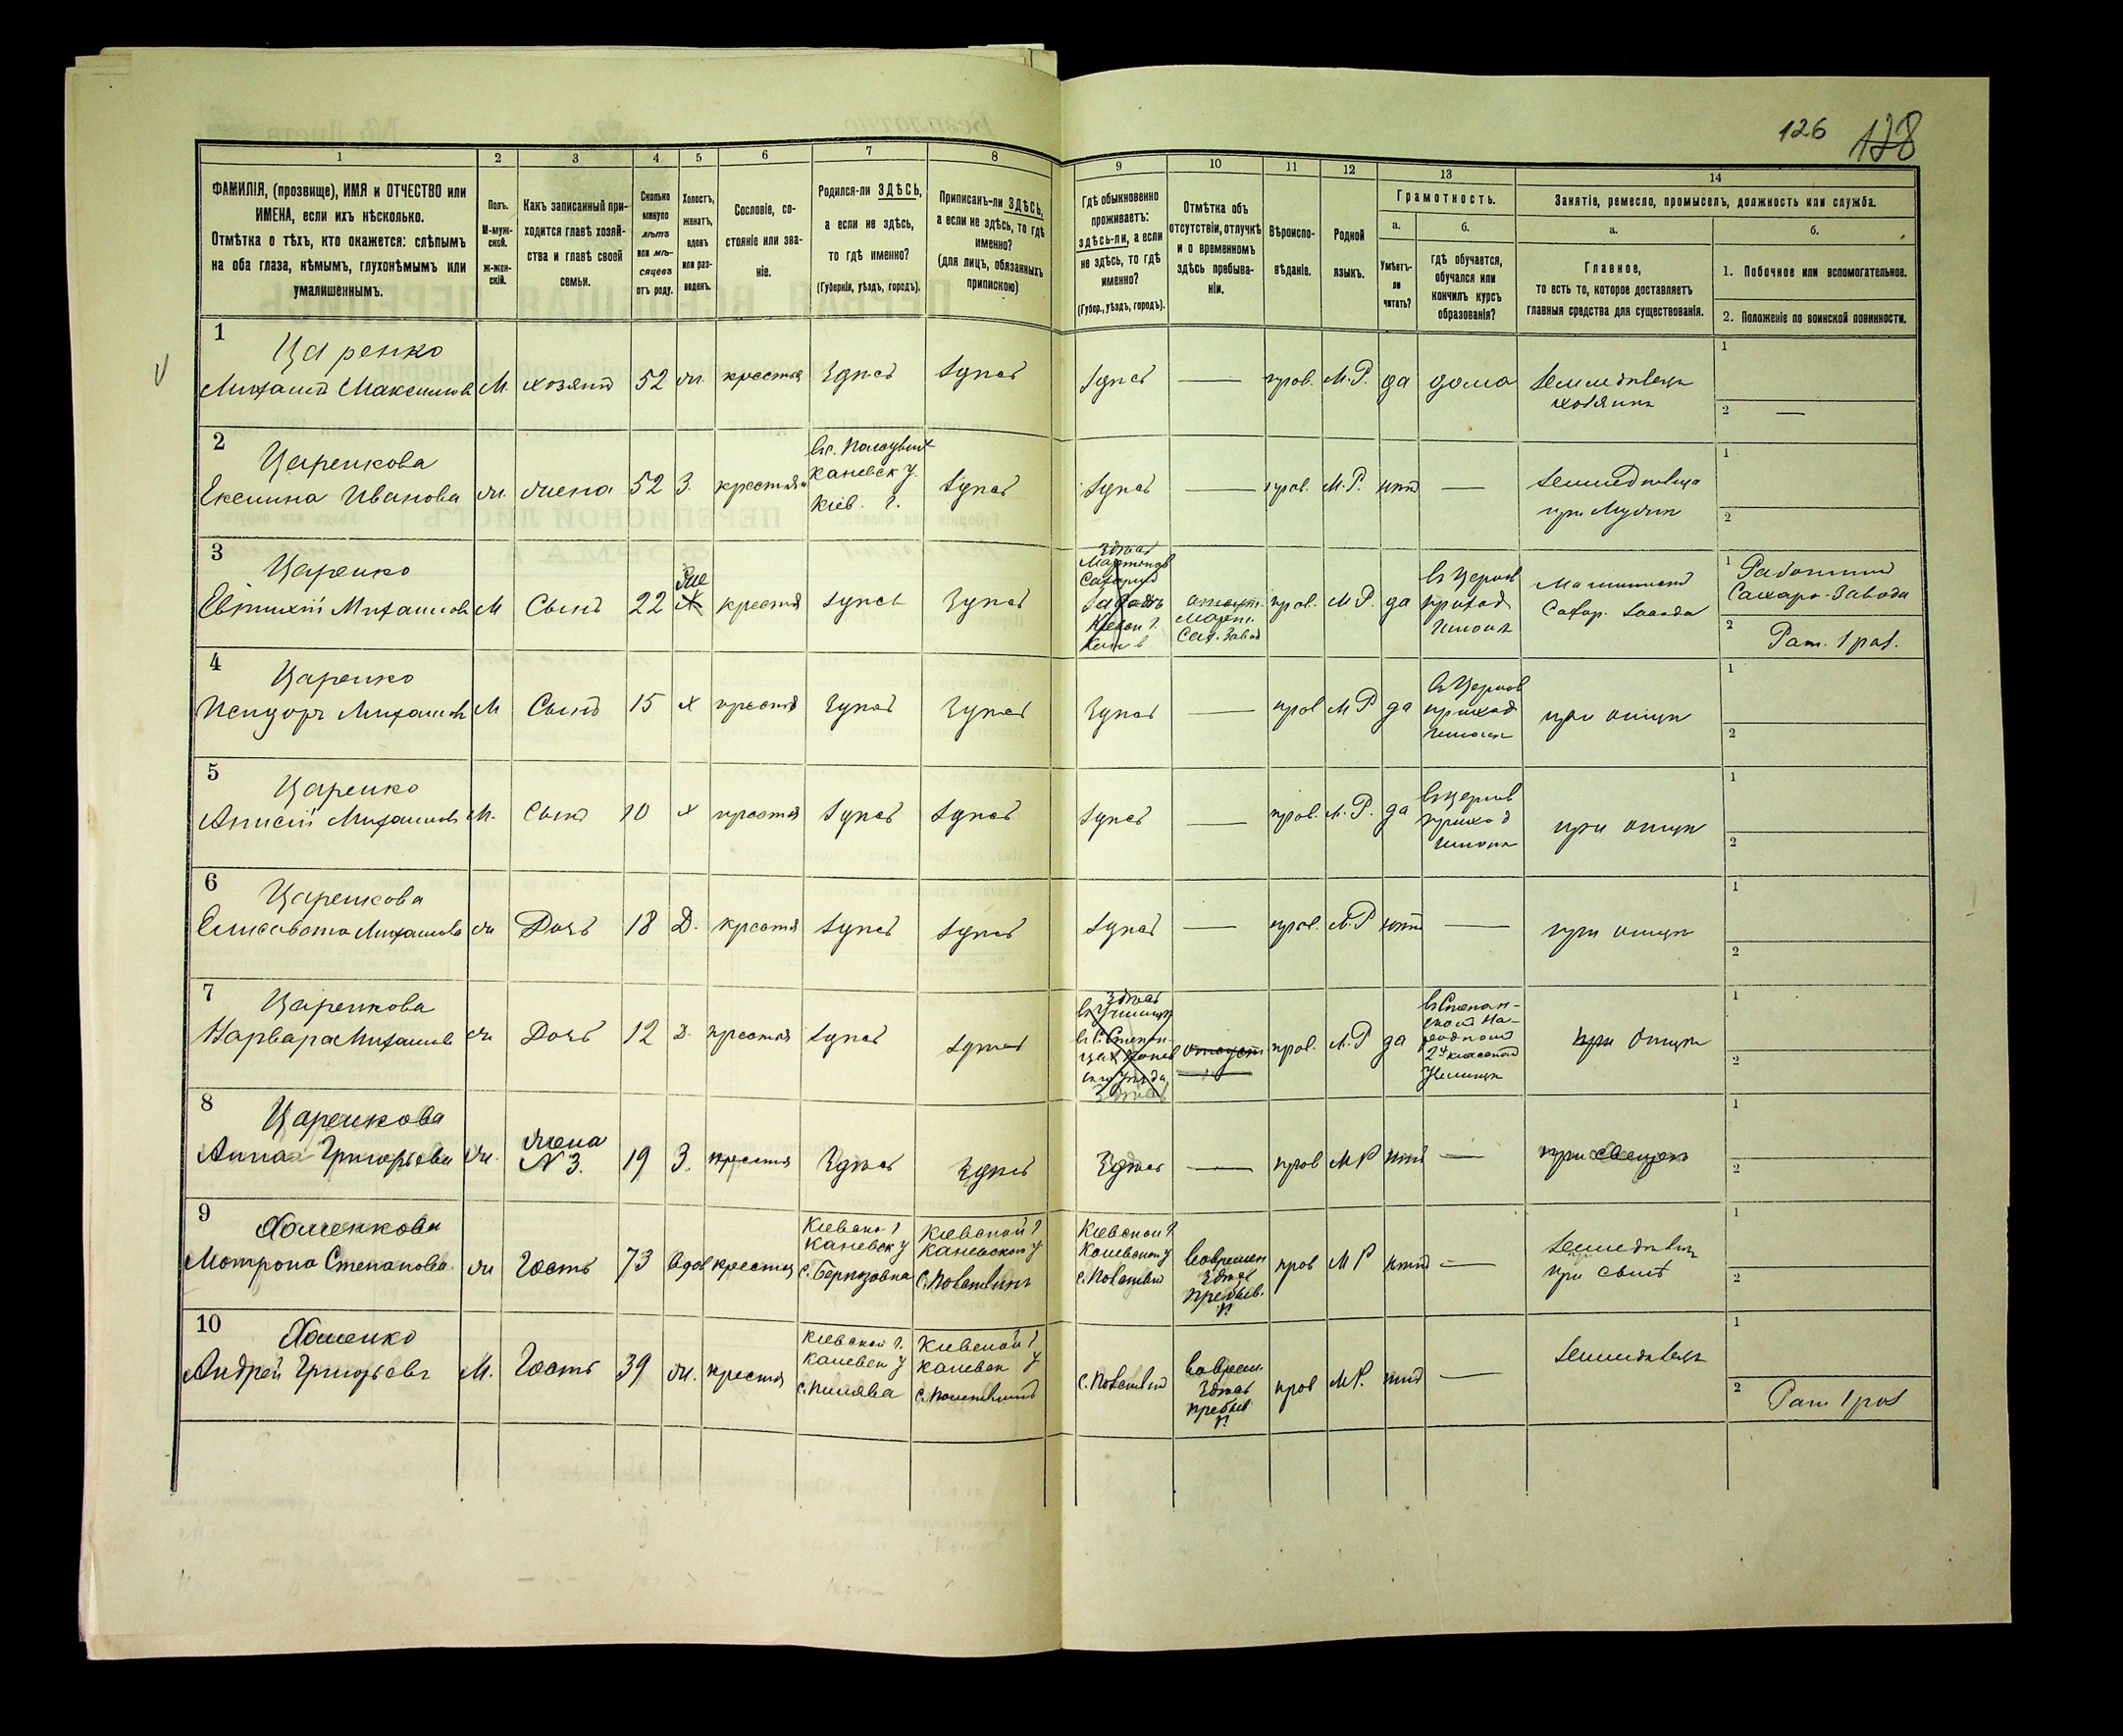 126 128
1 2 3 4 5 6 7 8 9 10 11 12 13 14
ФАМИЛІЯ, (прозвище), ИМЯ и ОТЧЕСТВО или
ИМЕНА, если ихъ нѣсколько.
Отмѣтка о тѣхъ, кто окажется: слѣпымъ
на оба глаза, нѣмымъ, глухонѣмымъ или
умалишеннымъ.
Полъ.
М-муж-
ской.
Ж-жен-
скій.
Какъ записанный при-
ходится главѣ хозяй-
ства и главѣ своей
семьи.
Сколько
минуло
лѣтъ
или мѣ-
сяцевъ
отъ роду.
Холостъ,
женатъ,
вдовъ
или раз-
веденъ.
Сословіе, со-
стояніе или зва-
ніе.
Родился-ли ЗДѢСЬ,
а если не здѣсь,
то гдѣ именно?
(Губернія, уѣздъ, городъ).
Приписанъ-ли ЗДѢСЬ,
а если не здѣсь, то гдѣ
именно?
(для лицъ, обязанныхъ
припискою)
Гдѣ обыкновенно
проживаетъ:
здѣсь-ли, а если
не здѣсь, то гдѣ
именно?
(Губер., уѣздъ, городъ).
Отмѣтка объ
отсутствіи, отлучкѣ
и о временномъ
здѣсь пребыва-
ніи.
Вѣроиспо-
вѣданіе.
Родной
языкъ.
Грамотность.
а.
Умѣетъ-
ли
читать?
б.
гдѣ обучается,
обучался или
кончилъ курсъ
образованія?
Занятіе, ремесло, промыселъ, должность или служба.
а.
Главное,
то есть то, которое доставляетъ
главныя средства для существованія.
б.
1. Побочное или вспомогательное.
2. Положеніе по воинской повинности.
1
Царенко
Михаилъ Максимовъ М. хозяинъ 52 ж. крестья Здѣсь Здѣсь Здѣсь — прав. М.Р. да дома Земледѣлецъ
хозяинъ
1
2 —
2
Царенкова
Ексенина Иванова ж. жена 52 З. крестьян
Каневск у
Кіев. г.
Здѣсь Здѣсь — прав. М.Р. нѣтъ — Земледѣлица
при Мужѣ
1
2
3
Царенко
Евтихій Михаиловъ М Сынъ 22 Же Х крестья Здѣсь Здѣсь
Здѣсь
Сахарный
Заводъ
отсут.
Сах. Завод
прав. М Р. да
въ Церков
приход
Школѣ
Машинистъ
Сахар. Завода
1 Работникъ
Сахаро-Завода
2 Рат. 1 раз.
4
Царенко
Исидоръ Михаиловъ М Сынъ 15 Х крестья Здѣсь Здѣсь Здѣсь — прав М Р да
въ Церков
приход
Школѣ
при отцѣ
1
2
5
Царенко
Анисій Михаиловъ М. Сынъ 10 Х крестья Здѣсь Здѣсь Здѣсь — прав. М.Р. да
въ Церков
приход
Школѣ
при отцѣ
1
2
6
Царенкова
Елисавета Михаилова ж Дочь 18 Д. крестья Здѣсь Здѣсь Здѣсь — прав. М.Р нѣтъ — при отцѣ
1
2
7
Царенкова
Варвара Михаилов ж Дочь 12 Д. крестья Здѣсь Здѣсь
Здѣсь
въ Училищѣ
въ С. Степан-
Здѣсь
отсут
прав. М.Р да
въ Степан-
ской На-
родной
2х классной
Училищѣ
при Отцѣ
1
2
8
Царенкова
Анна Григорьева Ж.
жена
N 3.
19 З. крестья Здѣсь Здѣсь Здѣсь — прав М Р нѣтъ — при
1
2
9
Хоменкова
Мотрона Степанова ж Гость 73 вдов крестья
Кіевско г
Каневск у
Кіевской г
Каневской у
Кіевской г
Каневской у
вовремен
Здѣсь
пребыв.
прав М Р нѣтъ —
Земледѣлец
при сынѣ
1
2
10
Хоменко
Андрей Григорьевъ М. Гость 39 ж. крестья
Кіевской г.
Каневск у
с. Пилява
Кіевской г
Каневск у
воврем.
Здѣсь
пребыв
прав М Р. нѣтъ —
Земледѣлецъ
1
2 Рат 1 раз